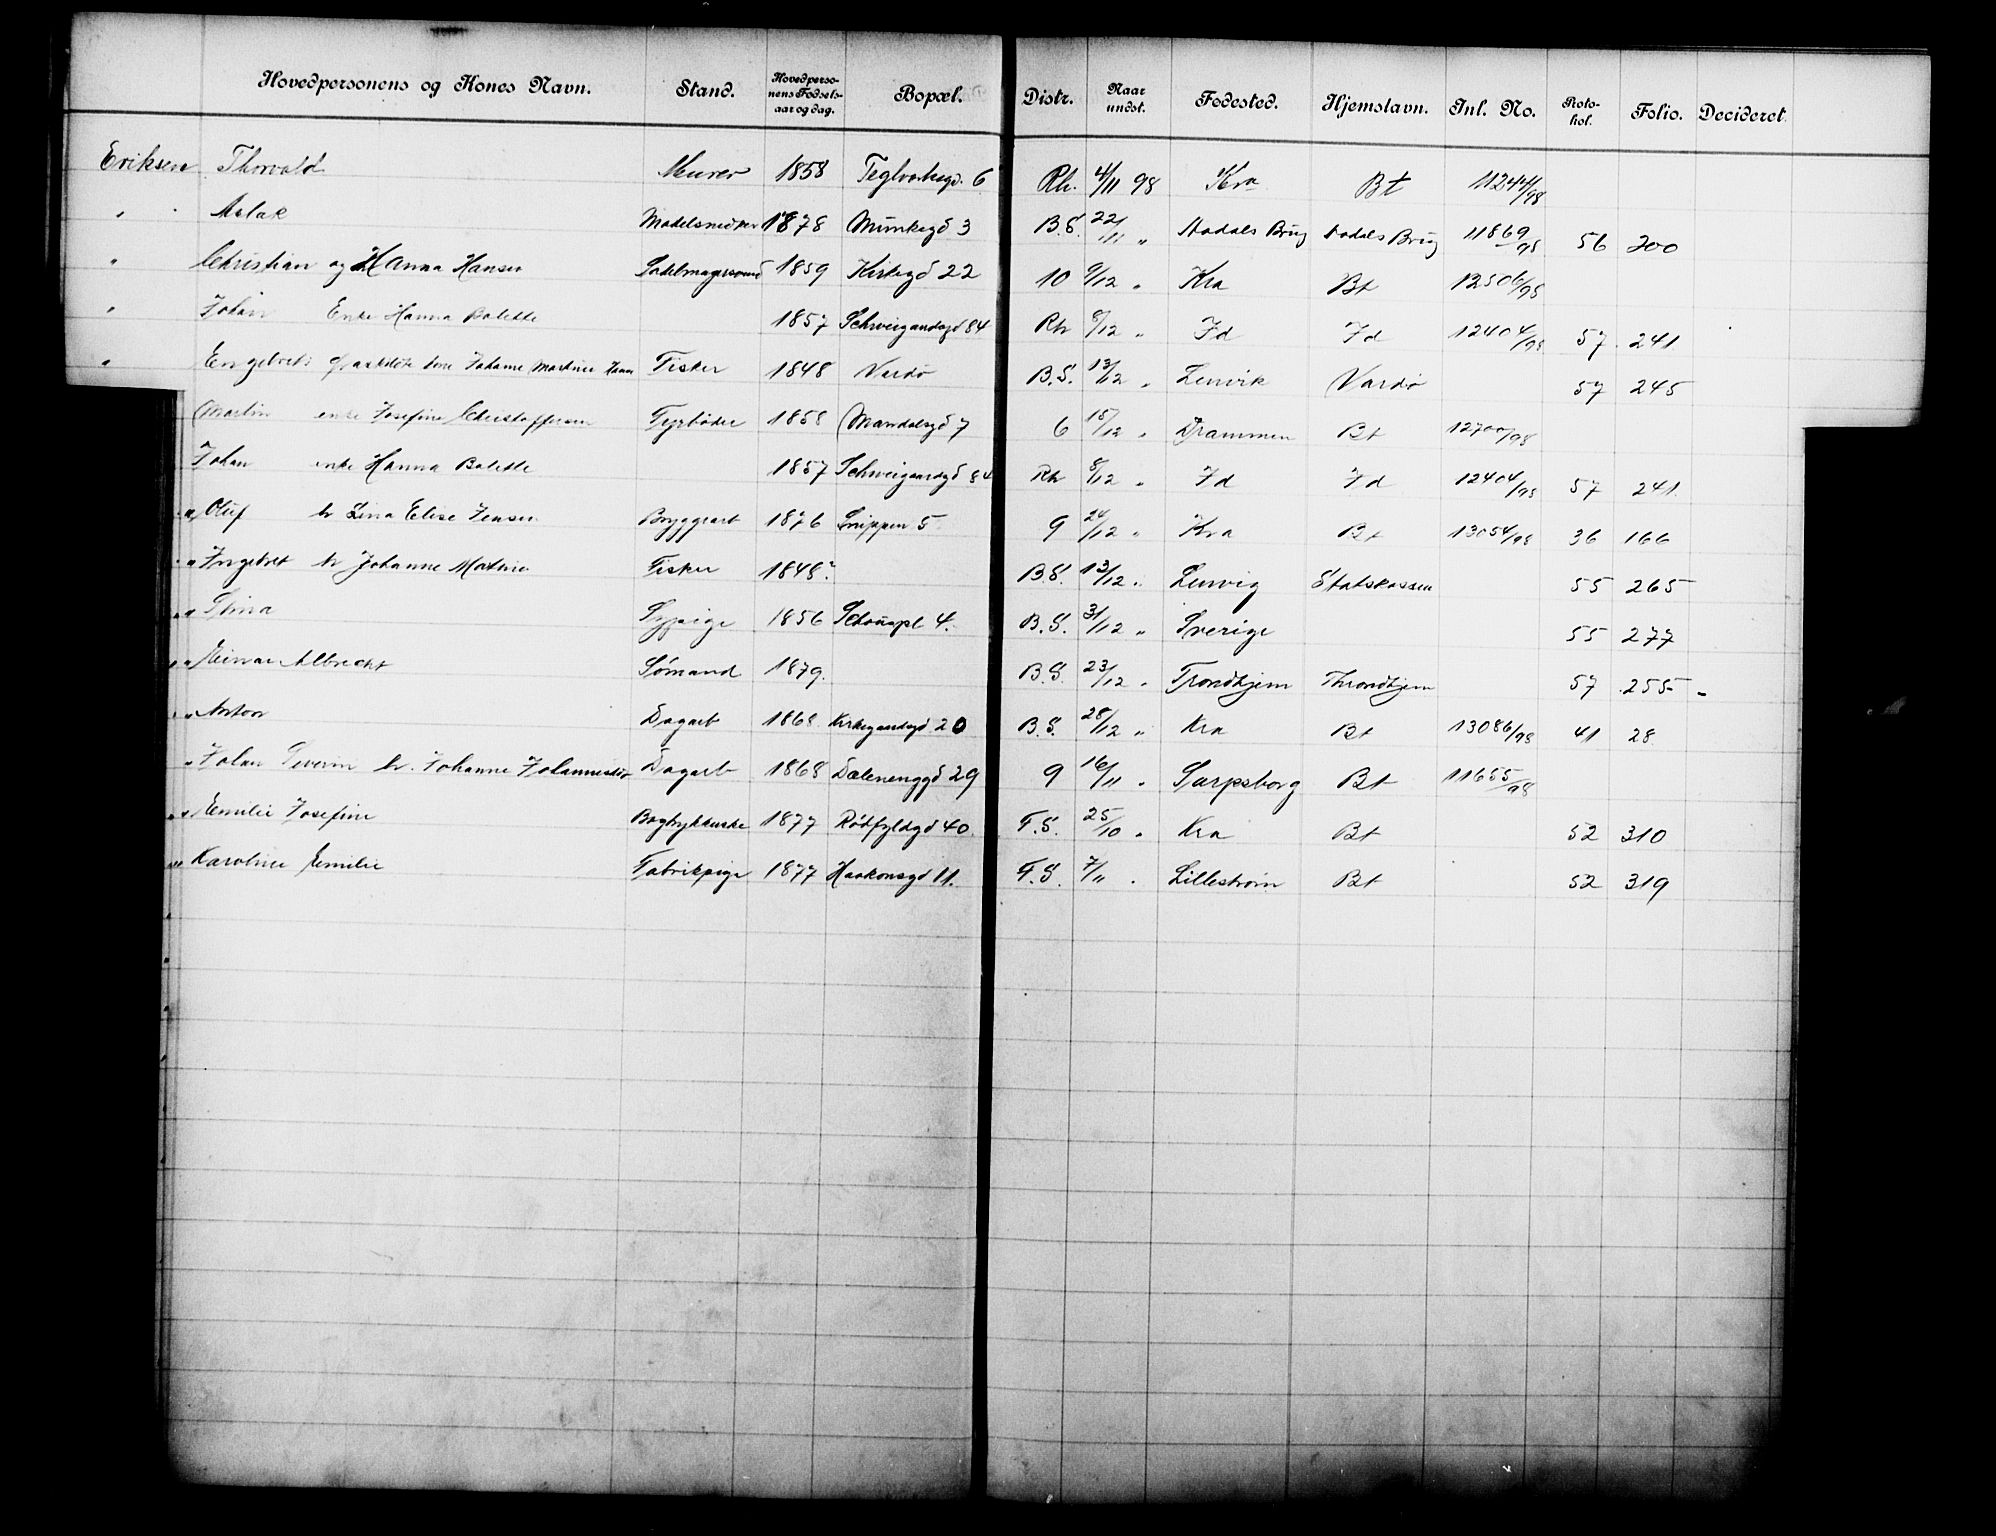 Hovedpersonens og Kones Navn. Stand. Hovedpersonens Fødselsaar og dag. Bopæl. Distr. Naar undst. Fødested. Hjemstavn. Inl. No. Protokol. Folio. Decideret
Eriksen Thorvald Murer 1858 Teglverksgd. 6 Rh. 4/11 98 Kra Bt 11244/98
" Aslak Modelsnedker 1878 Munkegd 3 B.S. 22/11 " Aadals Brug Aadals Brug 11869/98 56 200
" Christian og Hanna Hansen Sadelmagersvend 1859 Kirkegd 22 10 9/12 " Kra Bt 12506/98
" Johan Enke Hanna Bolette 1857 Schweigaardsgd 84 Rh 8/12 " Id Id 12404/98 57 241
" Engebret Johanne Martine Fisker 1848 Vardø B.S. 13/12 " Lenvik Vardø 57 245
Martin enke Josefine Christoffersen Fyrbøder 1858 Mandalsgd 7 6 15/12 " Drammen Bt 12700/98
Johan enke Hanna Bolette 1857 Schweigaardsgd 84 Rh 8/12 " Id Id 12404/98 57 241
" Oluf h. Lina Elise Jensen Bryggearb 1876 Snippen 5 9 24/12 " Kra Bt 13054/98 36 166
" Ingebret h. Johanne Martine Fisker 1848? B.S. 13/12 " Lenvig Statskassen 55 265
" " Stina Sypige 1856 Schouspl 4. B.S. 3/12 " Sverige 55 277
" " Einar Albrecht Sømand 1879. B.S. 23/12 " Trondhjem Throndhjem 57 255
" " Anton Dagarb 1868 Kirkegaardsgd 20 B.S. 28/12 " Kra Bt 13086/98 41 28
" Johan Severin h. Johanne Johannesdtr Dagarb 1868 Dælenenggd 29 9 16/11 " Sarpsborg Bt 11655/98
" " Emilie Josefine Bogtrykkerske 1877 Rødfyldgd 40 F.S. 25/10 " Kra Bt 52 310
" " Karoline Emilie Fabrikpige 1877 Haakonsgd 11. F.S. 7/11 " Lillestrøm Bt 52 319